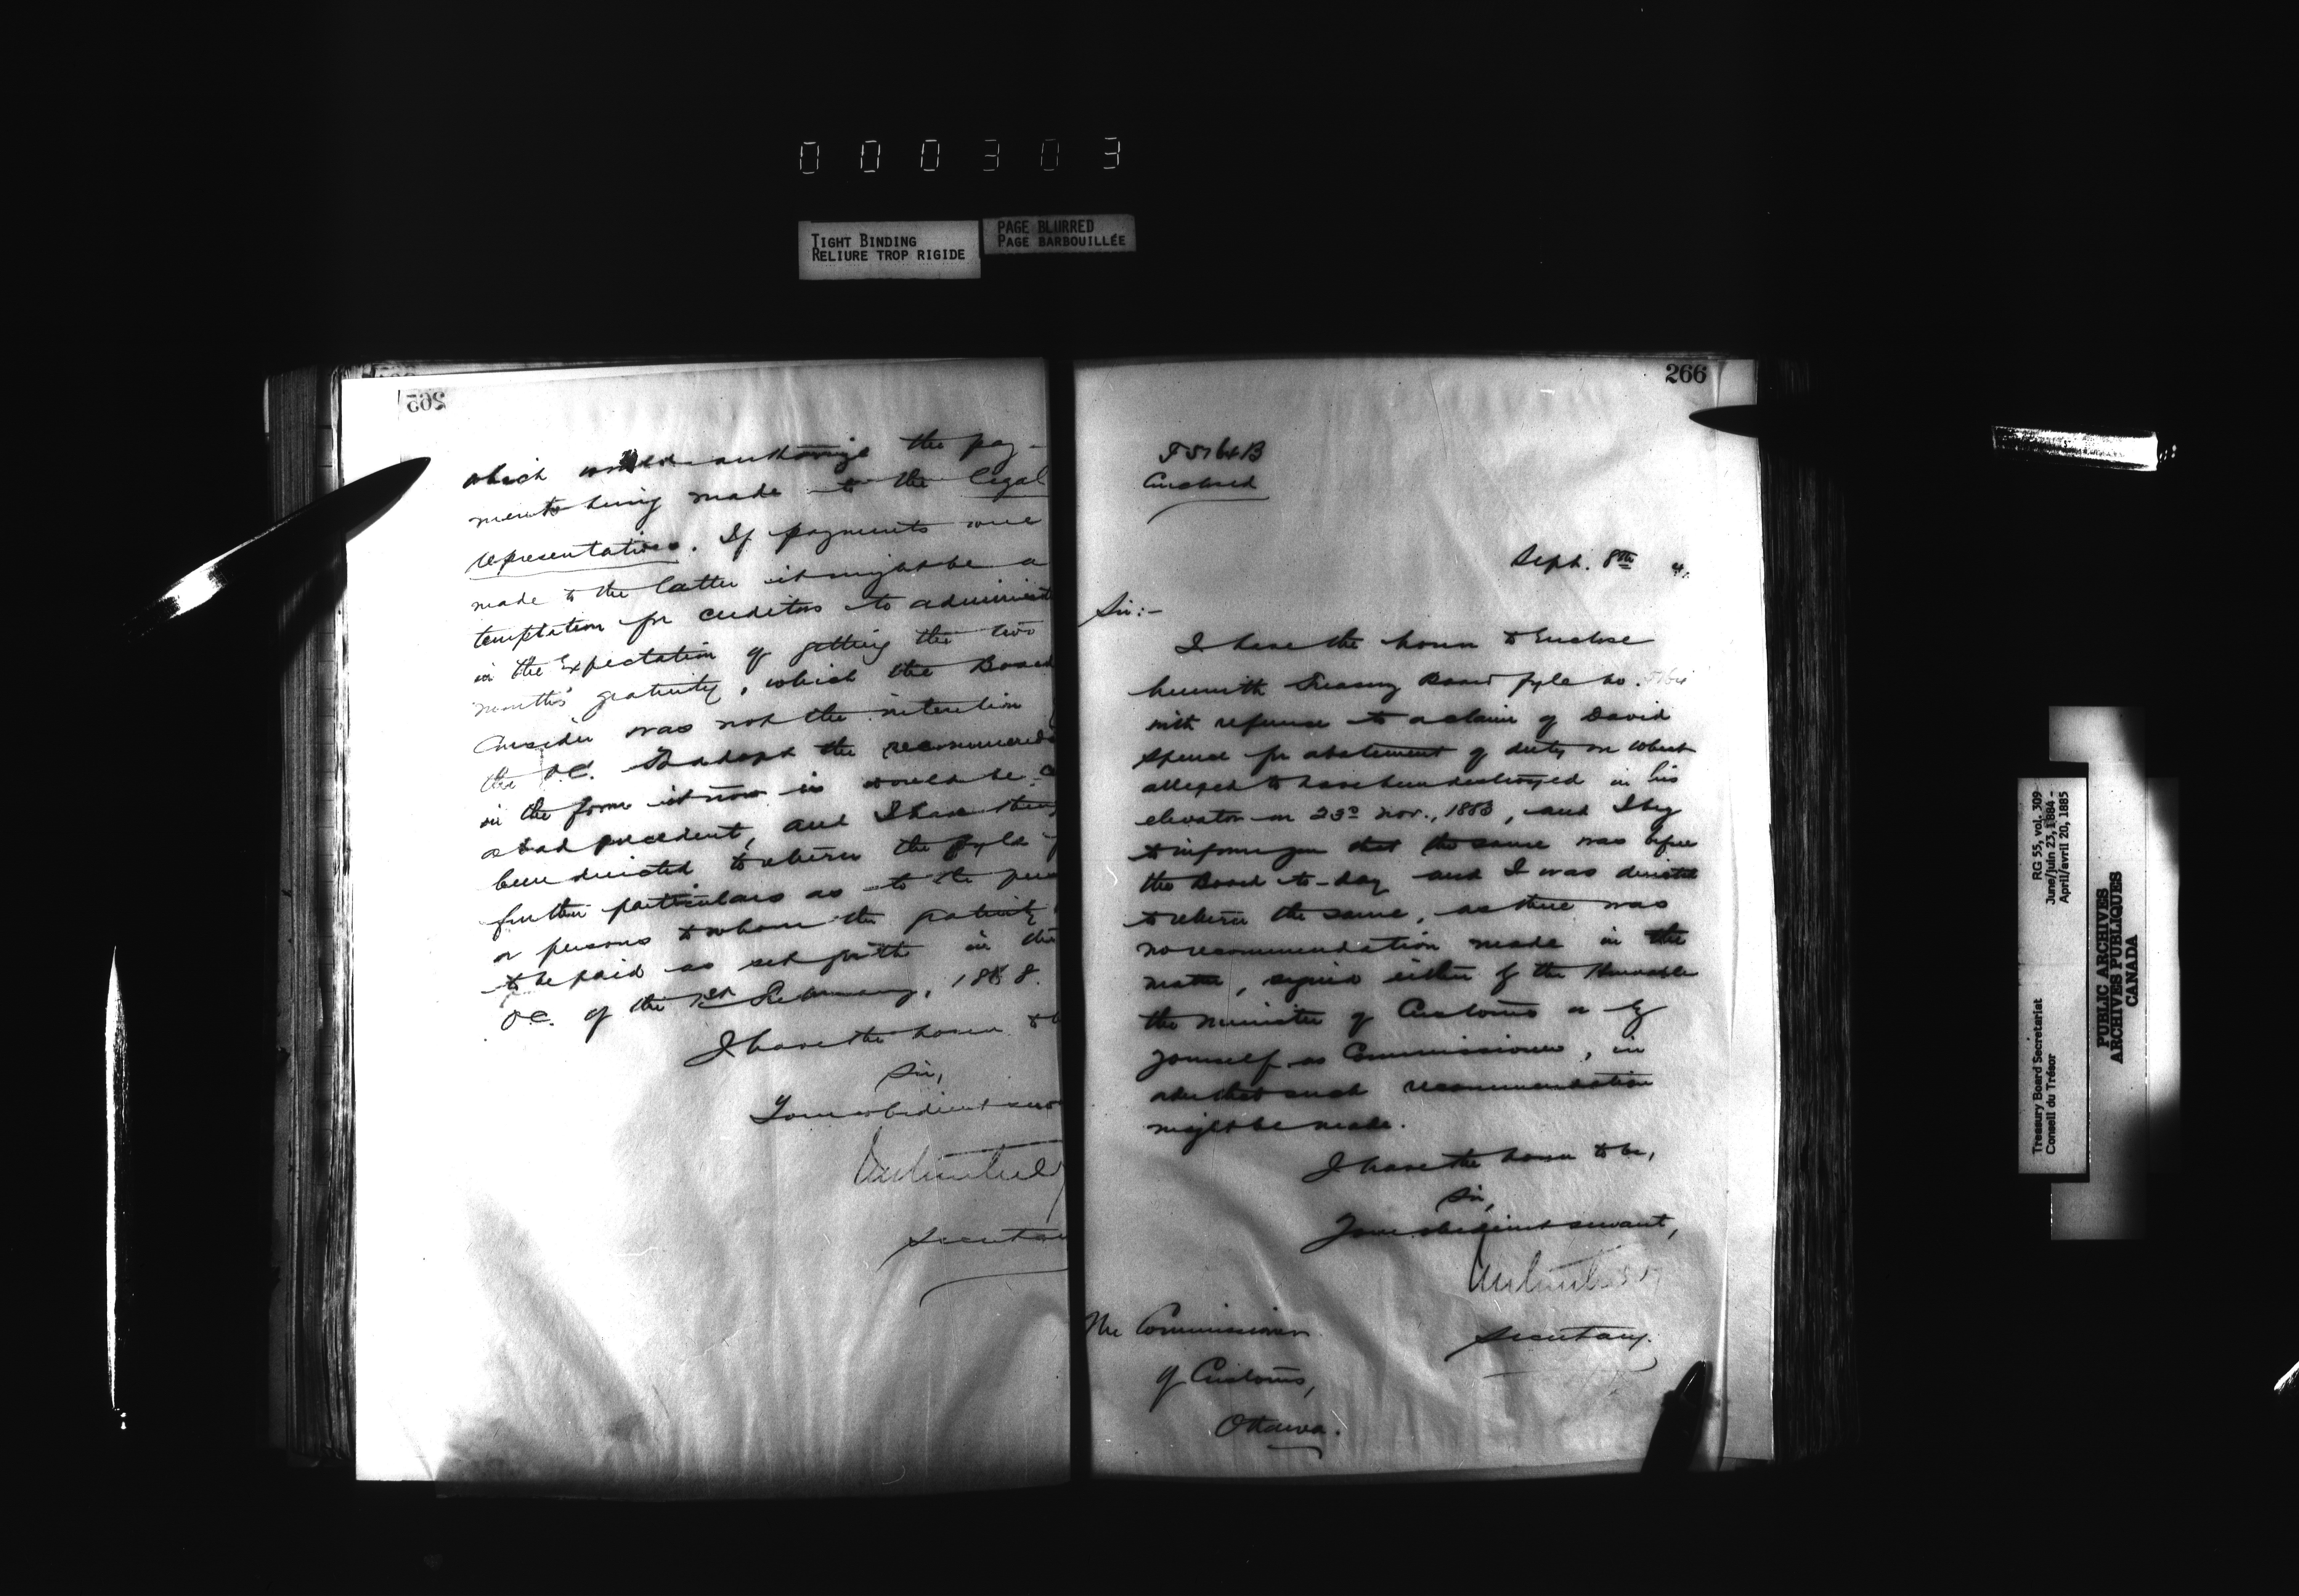 000303
TIGHT BINDING
RELIURE TROP RIGIDE
PAGE BLURRED
PAGE BARBOUILLÉE
265
which would authorize the pay-
ments being made to the legal
representatives. If payments were
made to the latter it might be a
temptation for creditors to administ
in the expectation of getting the two
months' gratuity, which the Board
consider was not the intention
the O.C. To adopt the recommend
in the form it now is would be
a bad precedent, and I have
been directed to return the fyle
further particulars as to the
or persons to whom the gratuity
to be paid as set forth in the
O.C. of the 1st February, 1868.
I have the honor to
Sir,
Your obedient
Secretary
266
5164B
Enclosed
Sept. 8th 4.
Sir:-
I have the honor to enclose
herewith Treasury Board fyle no. 5164
with reference to a claim of David
Spence for abatement of duty on wheat
alleged to have been destroyed in his
elevator on 23d Nov., 1883, and I beg
to inform you that the same was before
the Board to-day and I was directed
to return the same, as there was
no recommendation made in the
matter, signed either by the Honorable
the Minister of Customs or by
yourself as Commissioner, in
order that such recommendation
might be made.
I have the honor to be,
Sir,
Your obedient servant,
Secretary.
The Commissioner
of Customs,
Ottawa.
Treasury Board Secretariat
Conseil du Trésor
RG 55, vol. 309
June/juin 23, 1884 -
April/avril 20, 1885
PUBLIC ARCHIVES
ARCHIVES PUBLIQUES
CANADA